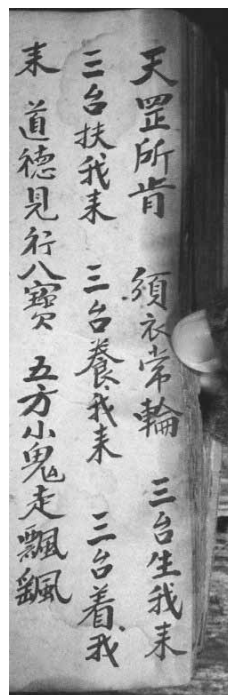 天罡所肯 須衣常輪 三台生我耒
三台扶我耒 三台養我耒 三台着我
耒 道德見行八寶 五方小鬼走飄飄